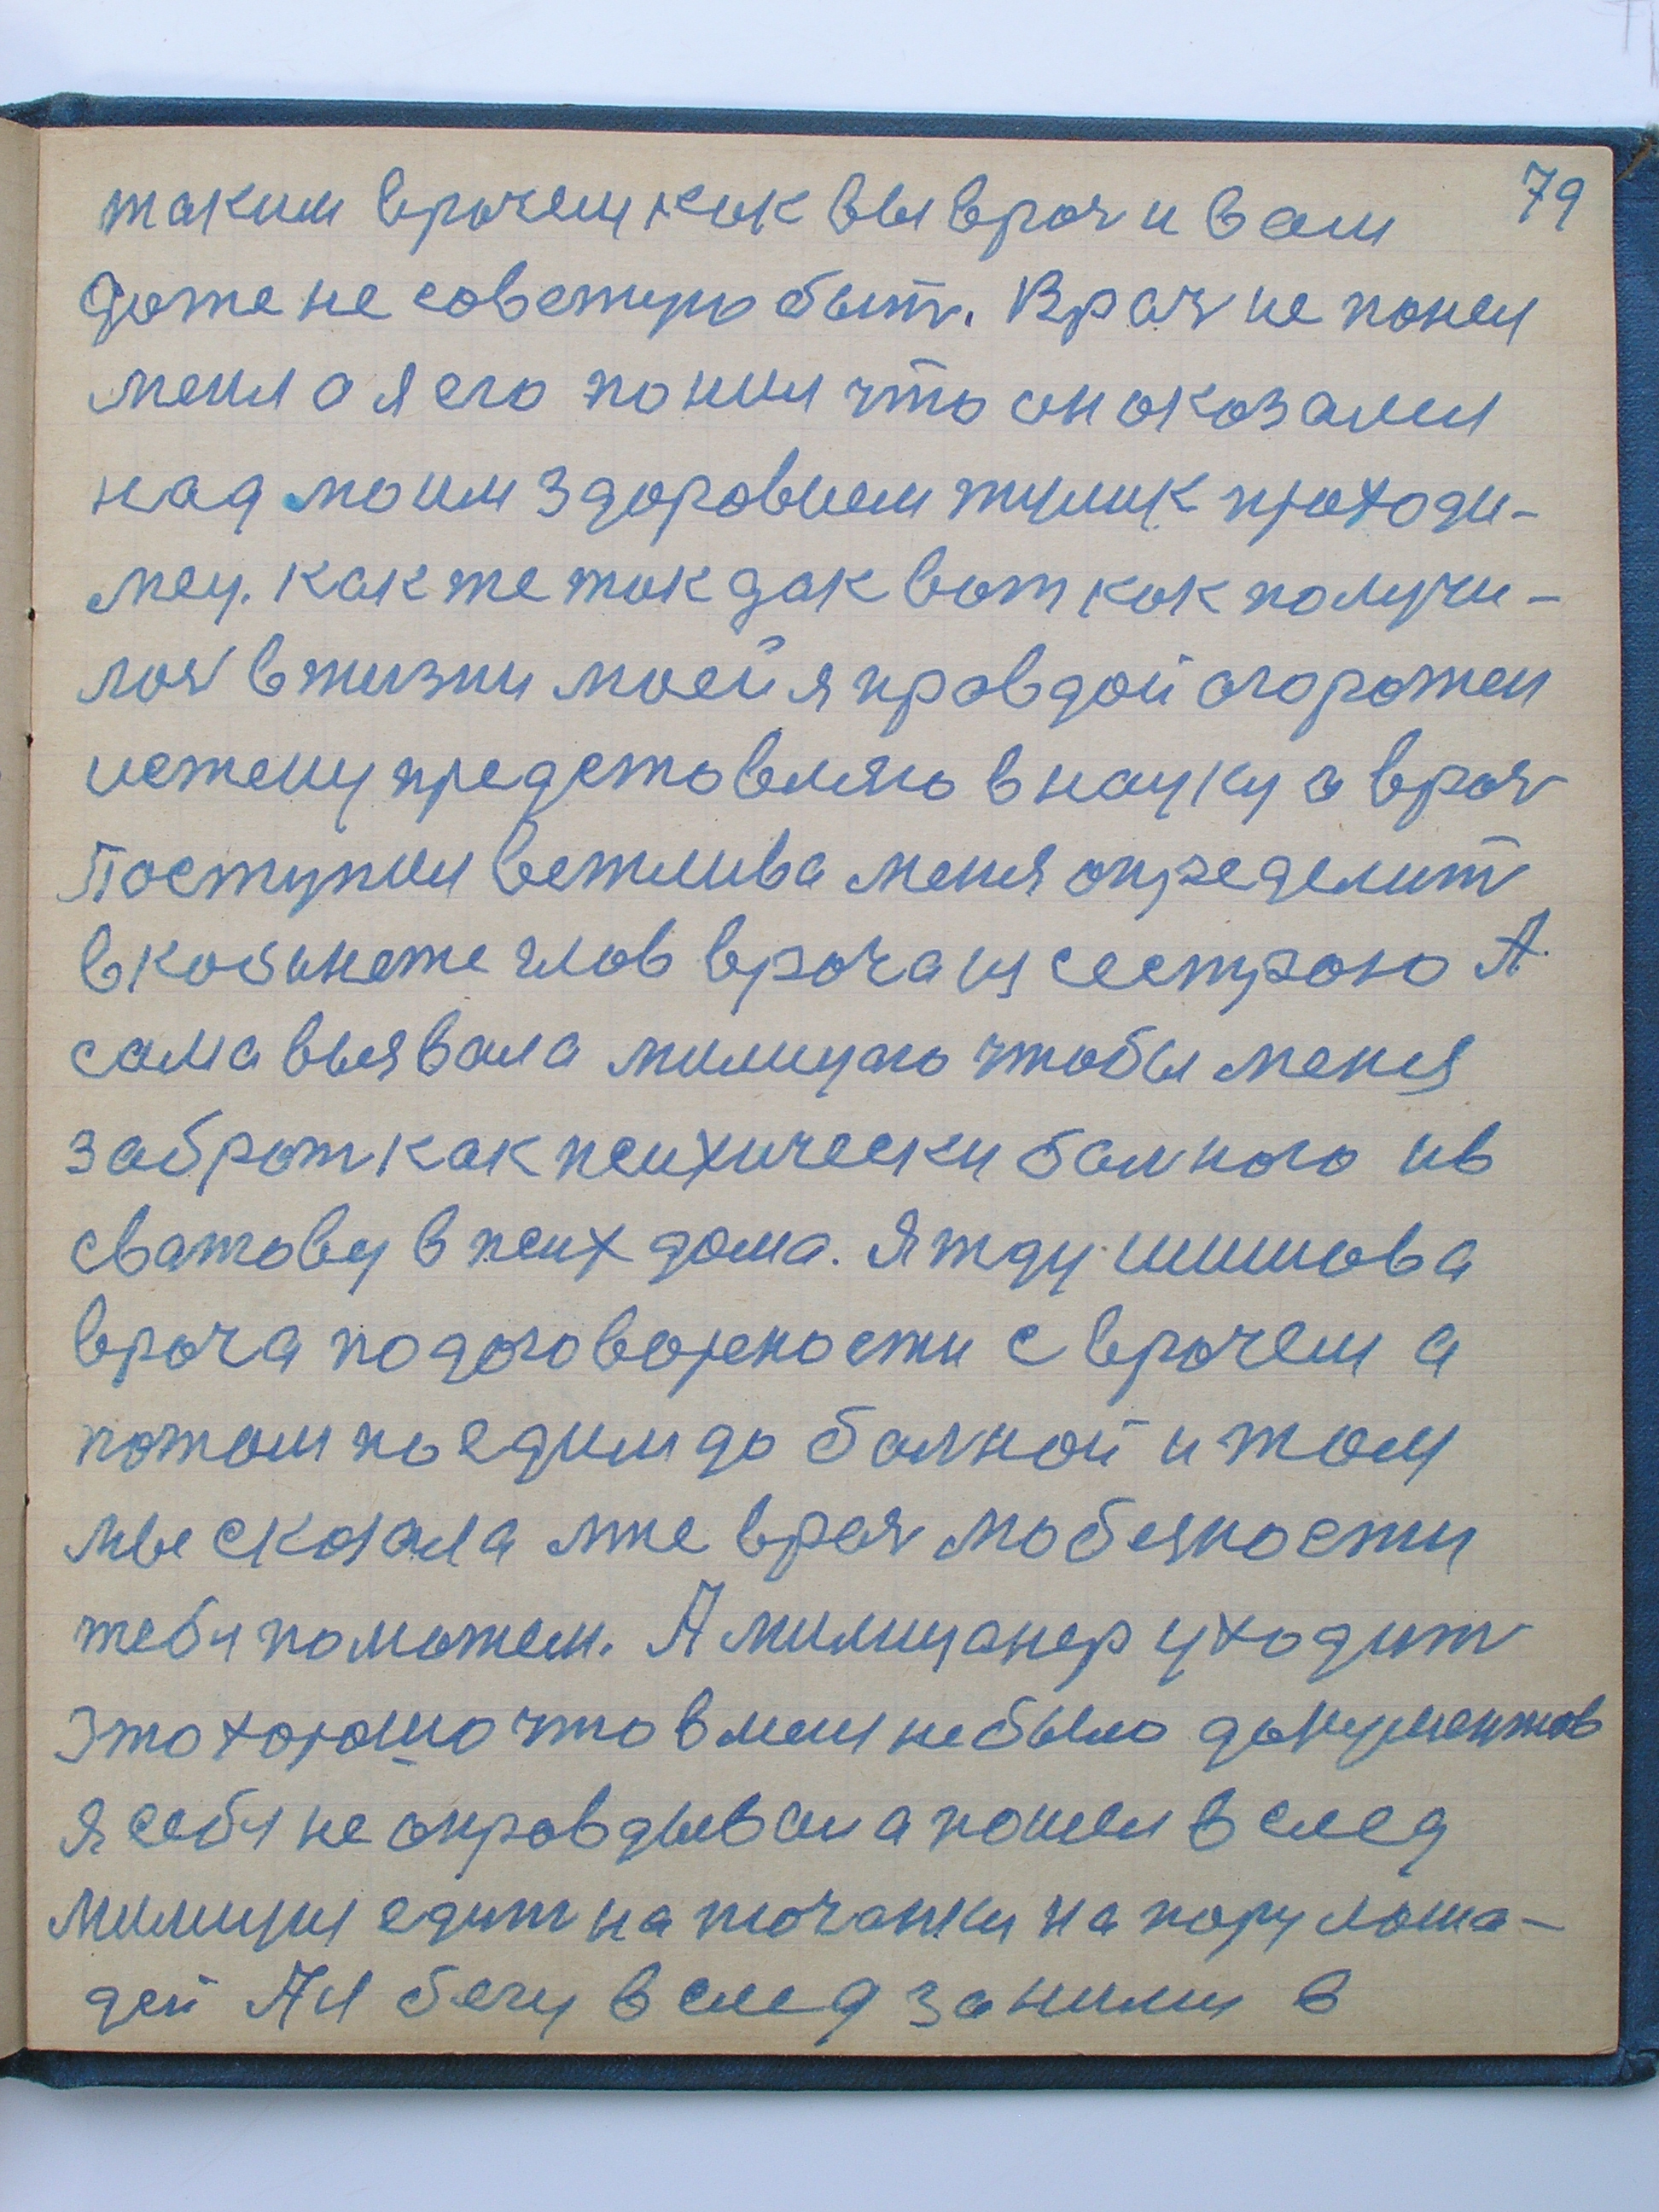 79
таким врачем как вы врач и вам
даже не советую быт. Врач не понел
меня а я его понил что он оказался
над моим здоровием жулик проходи-
мец. Как же так дак вот как получи-
лоя в жизни моей я правдой огорожен
истену представляю в науку а врач
Поступил вежлива меня определит
в кабинете глав врача из сестрою А
сама вызвала милицию чтобы меня
забрат как психически балного ив
сватову в псих дома. Я жду шишова
врача по договорености с врачем а
потом поедим до балной и там
мы сказала мне врач
тебя поможем. А милицанер уходит
Это хорошо что в меня небыло документов
я себя не оправдывал а пошел в след
милиция едит на тачанки на пару лоша-
дей А я бегу в след за ними в